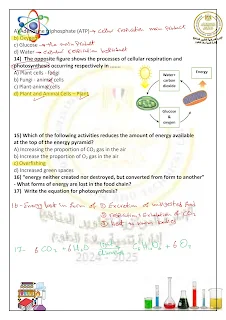 A) Adenosine triphosphate (ATP) → cellular respiration main product
b) Oxygen
c) Glucose → the main product
d) Water → cellular respiration
14) The opposite figure shows the processes of cellular respiration and
photosynthesis occurring respectively in ......
A) Plant cells - fungi
B) Fungi - animal cells
C) Plant-animal cells
d) Plant and Animal Cells – Plant
Water+
carbon
dioxide
Energy
Glucose
&
oxygen
15) Which of the following activities reduces the amount of energy available
at the top of the energy pyramid?
A) Increasing the proportion of CO₂ gas in the air
b) Increase the proportion of O₂ gas in the air
c) Overfishing
d) Increased green spaces
16) "energy neither created nor destroyed, but converted from form to another"
- What forms of energy are lost in the food chain?
17) Write the equation for photosynthesis?
16- Energy lost in form of ① Excretion of undigested food
② respiration: Exhalation of CO₂
③ heat
17- 6 CO₂ + 6 H₂O
+ 6 O₂
2024 - 2025